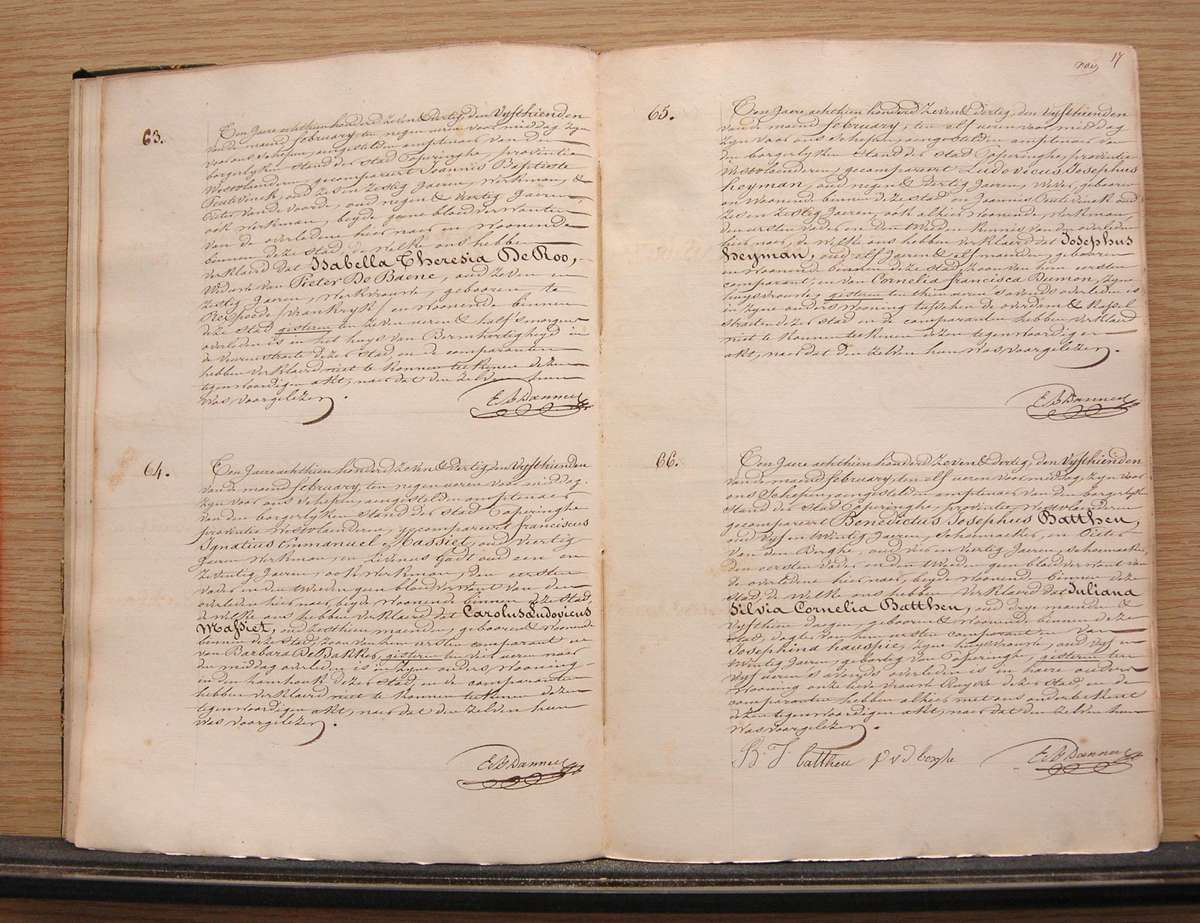 63.
Ten Jaere achthien honderd zeven & dertig, den Vyfthienden
van de maend february, ten negen uren voor middag zyn
voor ons schepen aengestelden amptenaer van den
borgerlyken Stand der Stad Poperinghe provintie
Westvlaenderen, gecompareert Joannis Baptiste
oud zes en zestig Jaeren, Werkman, &
Pieter Van de Voorde, oud negen & dertig Jaeren,
ook Werkman, beyde geene bloedverwanten
van de overledene hier naer, en Woonende
binnen deze Stad, de Welke ons hebben
verklaerd dat Isabella Theresia De Roo,
Weduwe van Pieter De Baene, oud zeven en
zestig Jaeren, Werkvrouwe, gebooren te
Rexpoede Vrankryk en Woonende binnen
deze Stad gisteren ten zeven uren & half 's morgens
overleden is in het huys van Bermhertigheyd in
de Veurnestraete dezer Stad, en de comparanten
hebben verklaerd niet te konnen teekenen dezen
tegenwoordigen akt, naer dat den zelven hun
Was voorgelezen.
E B Dannee
64.
Ten Jaere achthien honderd zeven & dertig, den Vyfthienden
van de maend february, ten negen uren voor middag,
zyn voor ons schepen aengestelden amptenaer
van den borgerlyken Stand der Stad Poperinghe
provintie Westvlaenderen, gecompareert franciscus
Ignatius Emmanuel Massiet, oud Veertig
Jaeren Werkman, en Livinus oud een en
zeventig Jaeren, ook Werkman, den eersten
vader en den Weeden geen bloedverwant van den
overleden hier naer, beyde Woonende binnen deze Stad,
de Welke ons hebben verklaerd dat Carolus Ludovicus
Massiet, oud zesthien maenden, gebooren & Woonende
binnen deze Stad, zoon van hem eersten comparant en
van Barbara De Bakker, gisteren ten vier uren naer
den middag overleden is in zyne ouders Wooning
in den hamhoek dezer Stad, en de comparanten
hebben verklaerd niet te konnen teekenen dezen
tegenwoordigen akt, naer dat den zelven hun
Was voorgelezen.
E B Dannee
17
65.
Ten Jaere achthien honderd zeven & dertig, den Vyfthienden
van de maend february, ten elf uren voor middag
zyn voor ons schepen aengestelden amptenaer van
den borgerlyken Stand der Stad Poperinghe, provintie
Westvlaenderen, gecompareert Ludovicus Josephus
heyman, oud negen & dertig Jaeren, Wever, gebooren
en Woonende binnen deze Stad en Joannes oud
zes en zestig Jaeren, ook alhier Woonende, Werkman,
den eersten vader en den Weeden kennis van den overleden
hier naer, de Welke ons hebben verklaerd dat Josephus
heyman, oud elf Jaeren & elf maenden, gebooren
en Woonende binnen deze Stad, zoon van hem eersten
comparant, en van Cornelia francisca Dumon, zyne
huysvrouwe, gisteren ten thien uren 's avonds overleden is
in zyne ouders Wooning tusschen de &
straeten dezer Stad en de comparanten hebben verklaerd
niet te konnen teekenen dezen tegenwoordigen
akt, naer dat den zelven hun Was voorgelezen.
E B Dannee
66.
Ten Jaere achthien honderd zeven & dertig, den Vyfthienden
van de maend february, ten elf uren voor middag, zyn voor
ons Schepen aengestelden amptenaer van den borgerlyken
Stand der Stad Poperinghe, provintie Westvlaenderen
gecompareert Benedictus Josephus Battheu,
oud vyf en twintig Jaeren, Schoemaeker, en Pieter
Van den Berghe, oud vier en Veertig Jaeren, schoemaeker,
den eersten vader en den Weeden geen bloedverwant van
de overledene hier naer, beyde Woonende binnen deze
Stad, de Welke ons hebben verklaerd dat Juliana
Silvia Cornelia Battheu, oud drye maenden &
vyfthien dagen, gebooren & Woonende binnen deze
Stad, dogter van hem eersten comparant en van
Josephina hauspie, zyne huysvrouwe, oud vyf en
twintig Jaeren, gebortig van Poperinghe, gisteren ten
vyf uren 's avonds overleden is in haere ouders
Wooning dezer Stad en de
comparanten hebben alhier met ons onderteekent
dezen tegenwoordigen akt, naer dat den zelven hun
Was voorgelezen.
B. J battheu P v d berghe E B Dannee